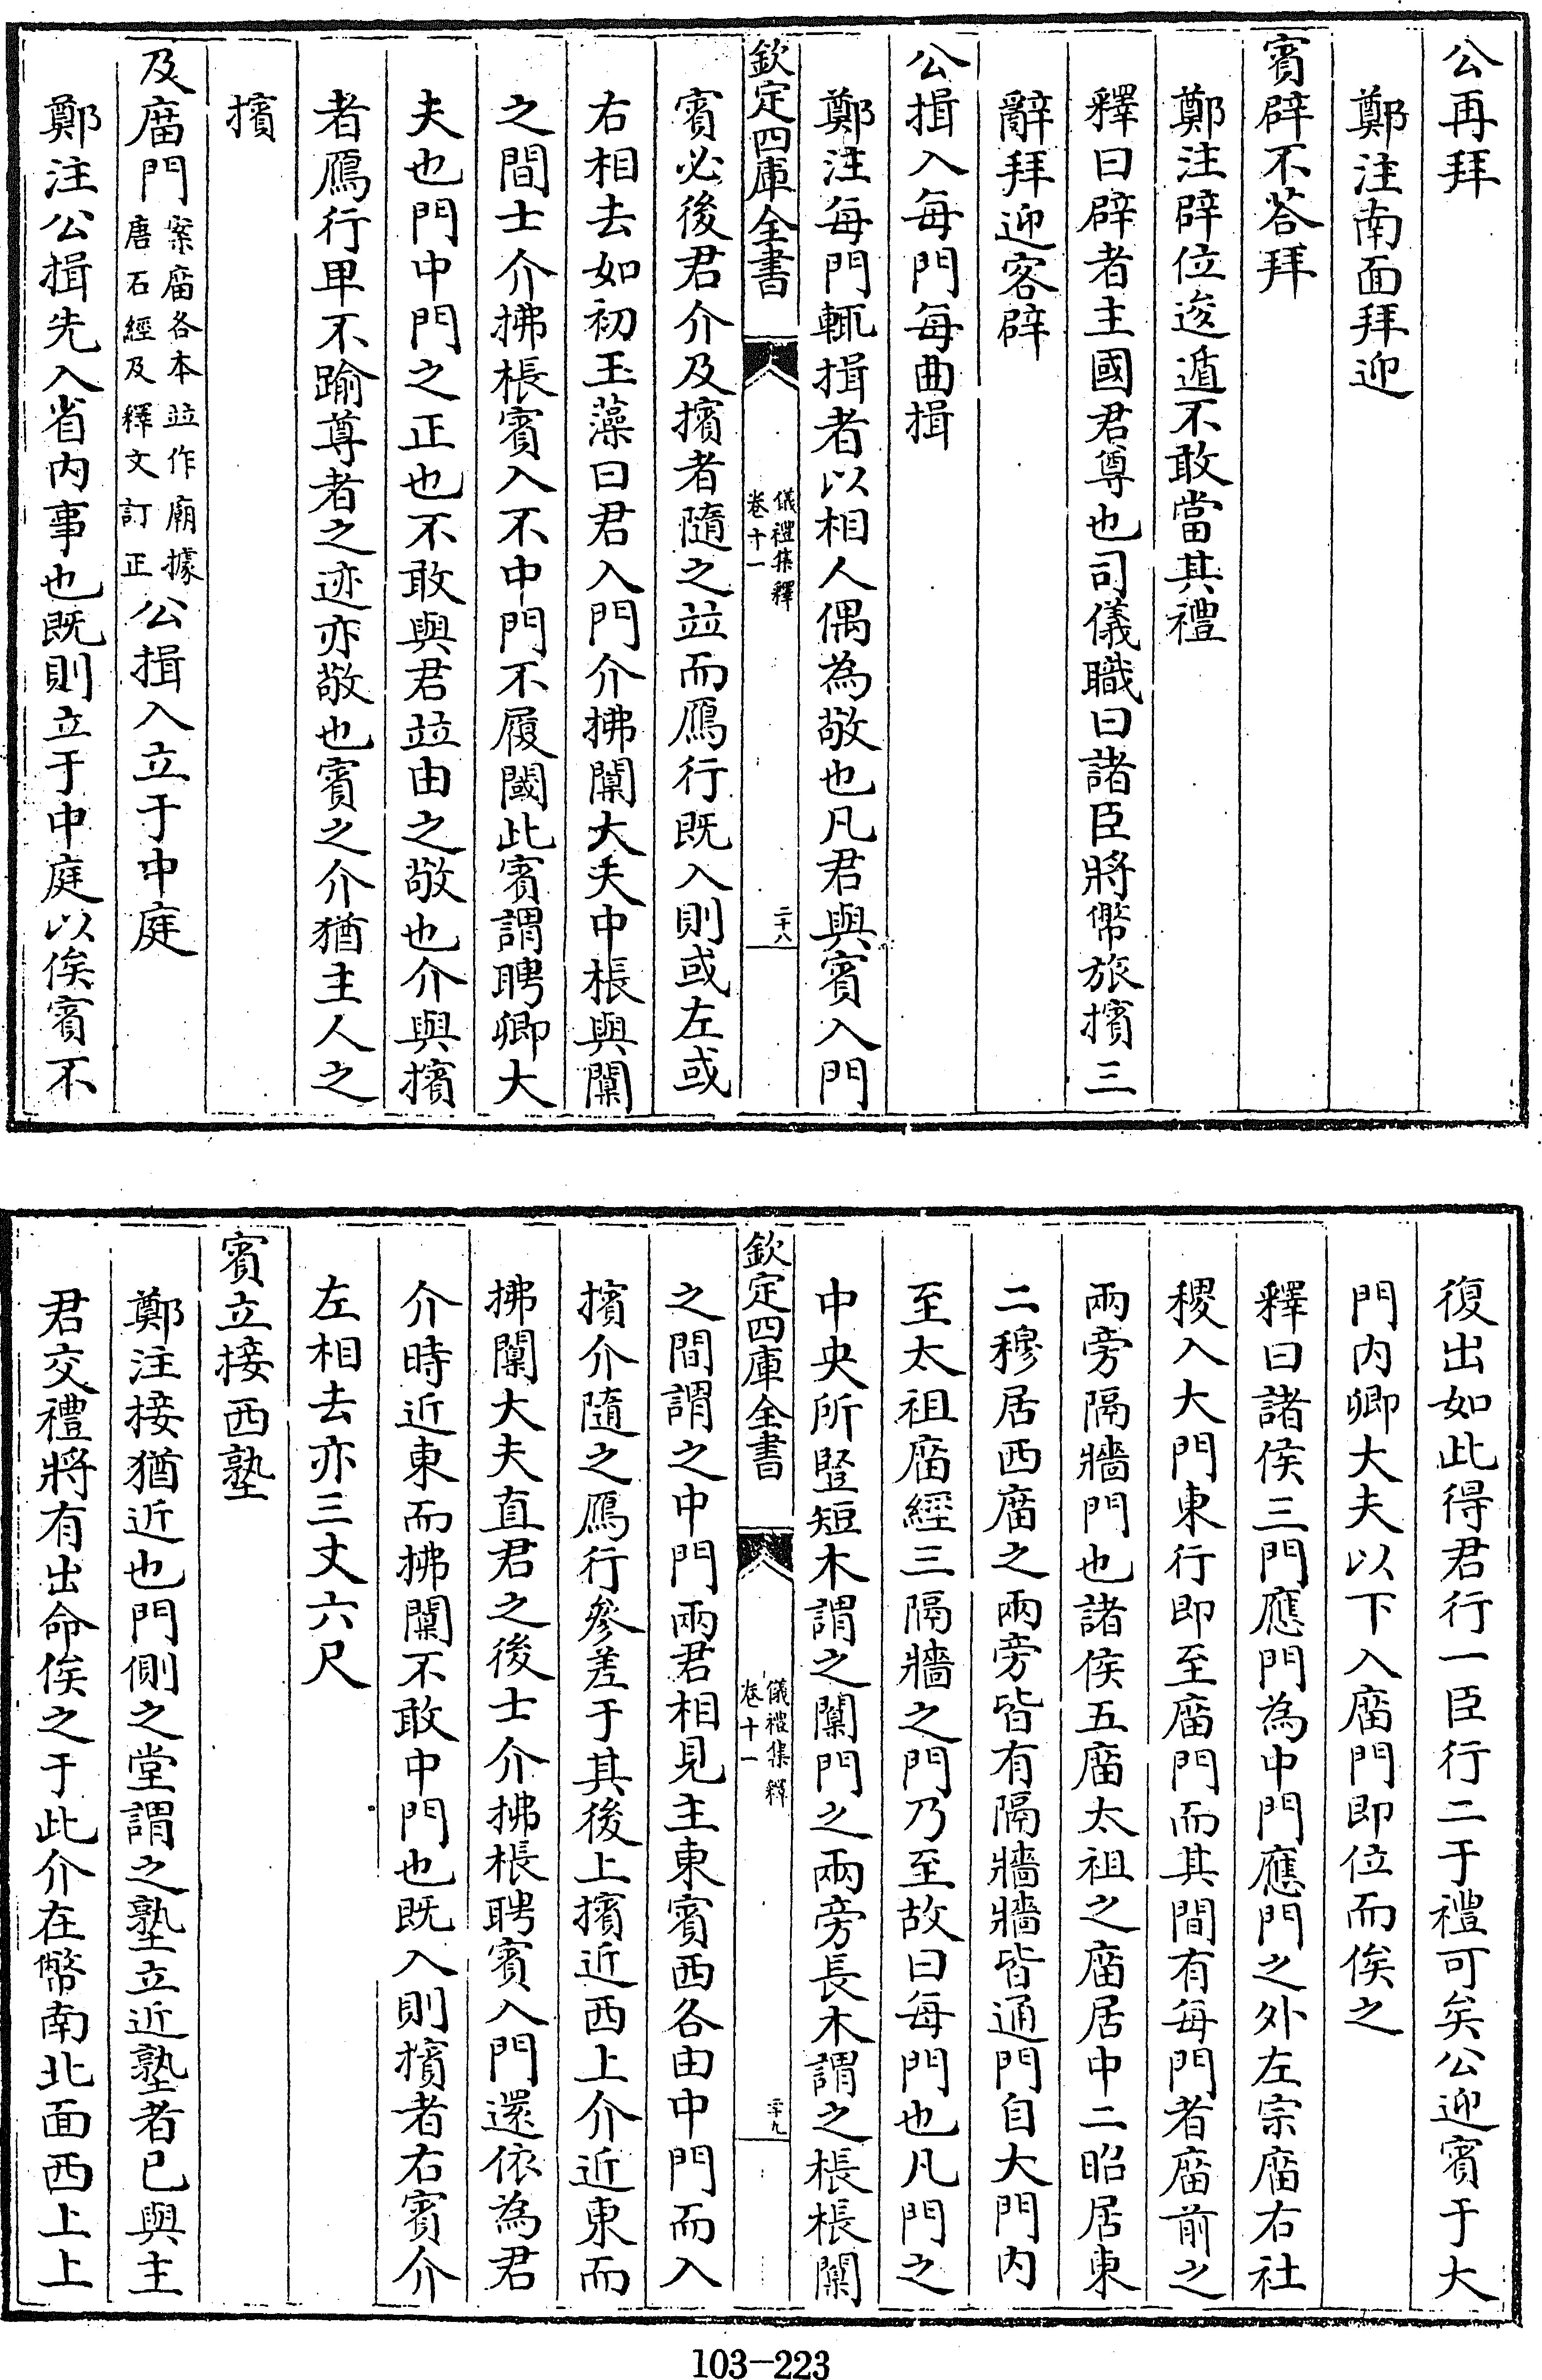 公再拜
鄭注南面拜迎
賓辟不荅拜
鄭注辟位逡遁不敢當其禮
釋曰辟者主國君尊也司儀職曰諸臣將幣旅擯三
辭拜迎客辟
公揖入每門每曲揖
鄭注每門輒揖者以相人偶為敬也凡君與賓入門
欽定四庫全書
儀禮集釋
卷十一
二十八
賓必後君介及擯者隨之竝而鴈行既入則或左或
右相去如初玉藻曰君入門介拂闑大夫中棖與闑
之間士介拂棖賓入不中門不履閾此賓謂聘卿大
夫也門中門之正也不敢與君竝由之敬也介與擯
者鴈行卑不踰尊者之迹亦敬也賓之介猶主人之
擯
及庿門案庿各本竝作廟據唐石經及釋文訂正公揖入立于中庭
鄭注公揖先入省内事也既則立于中庭以俟賓不
復出如此得君行一臣行二于禮可矣公迎賓于大
門内卿大夫以下入庿門即位而俟之
釋曰諸侯三門應門為中門應門之外左宗庿右社
稷入大門東行即至庿門而其間有每門者庿前之
兩旁隔牆門也諸侯五庿太祖之庿居中二昭居東
二穆居西庿之兩旁皆有隔牆牆皆通門自大門内
至太祖庿經三隔牆之門乃至故曰每門也凡門之
中央所豎短木謂之闑門之兩旁長木謂之棖棖闑
欽定四庫全書
儀禮集釋
卷十一
二十九
之間謂之中門兩君相見主東賓西各由中門而入
擯介隨之鴈行參差于其後上擯近西上介近東而
拂闑大夫直君之後士介拂棖聘賓入門還依為君
介時近東而拂闑不敢中門也既入則擯者右賓介
左相去亦三丈六尺
賓立接西塾
鄭注接猶近也門側之堂謂之塾立近塾者已與主
君交禮將有出命俟之于此介在幣南北面西上上
103-223